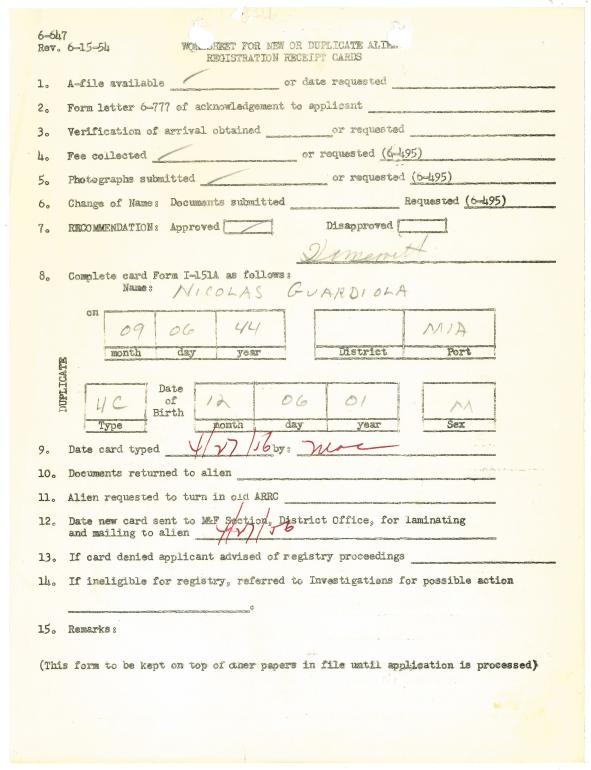 6-647
Rev. 6-15-54
WORKSHEET FOR NEW OR DUPLICATE ALIEN
REGISTRATION RECEIPT CARDS
1. A-file available or date requested
2. Form letter 6-777 of acknowledgement to applicant
3. Verification of arrival obtained or requested
4. Fee collected or requested (6-495)
5. Photographs submitted or requested (6-495)
6. Change of Name: Documents submitted Requested (6-495)
7. RECOMMENDATION: Approved Disapproved
8. Complete card Form I-151A as follows:
Name: NICOLAS GUARDIOLA
on 09 06 44 MIA
month day year District Port
DUPLICATE
4C Date of Birth 12 06 01 M
Type month day year Sex
9. Date card typed 4/27/56 by:
10. Documents returned to alien
11. Alien requested to turn in old ARRC
12. Date new card sent to M&F Section, District Office, for laminating
and mailing to alien 4/27/56
13. If card denied applicant advised of registry proceedings
14. If ineligible for registry, referred to Investigations for possible action
.
15. Remarks:
(This form to be kept on top of other papers in file until application is processed)